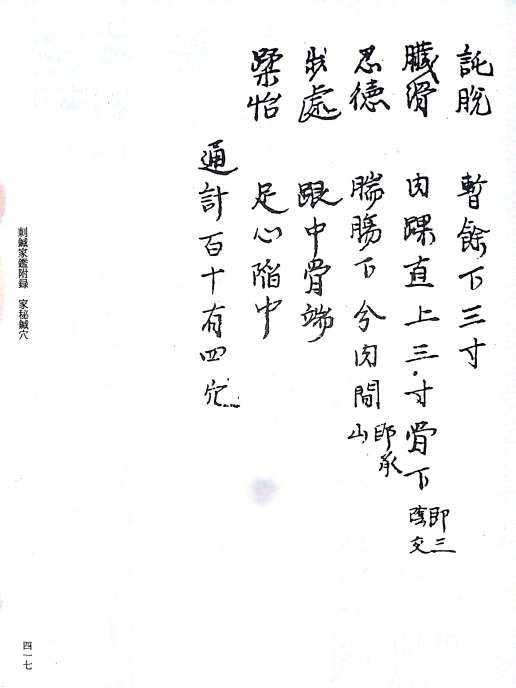 託脱 暫餘下三寸
臓滑 内踝直上三寸骨下 即三陰交
思德 腨腸下分肉間 即承山
處 跟中骨端
怡 足心陷中
通計百十有四穴
刺鍼家鑑附録 家秘鍼穴
四一七